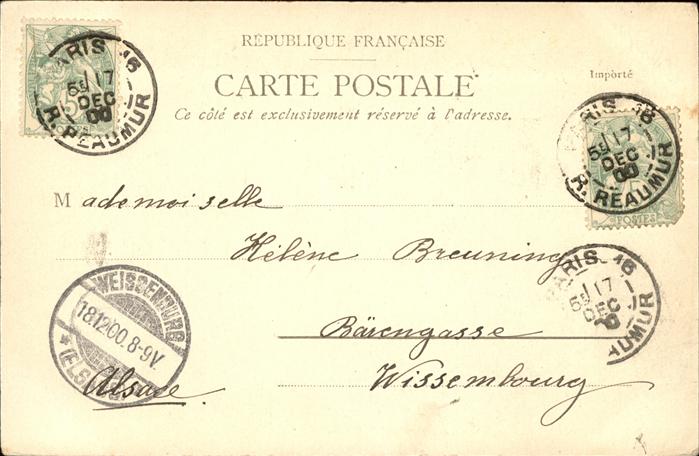 RÉPUBLIQUE FRANÇAISE
CARTE POSTALE
Importé
Ce côté est exclusivement réservé à l'adresse.
PARIS 16
5E 17
DEC
00
R. REAUMUR
5
PARIS 16
5E 17
DEC
00
R. REAUMUR
POSTES
Mademoiselle
Hélène Breuning
PARIS 16
5E 17
DEC
00
AUMUR
Bärengasse
Wissembourg
Alsace.
WEISSENBURG
18.12.00.8-9V.
* (ELS